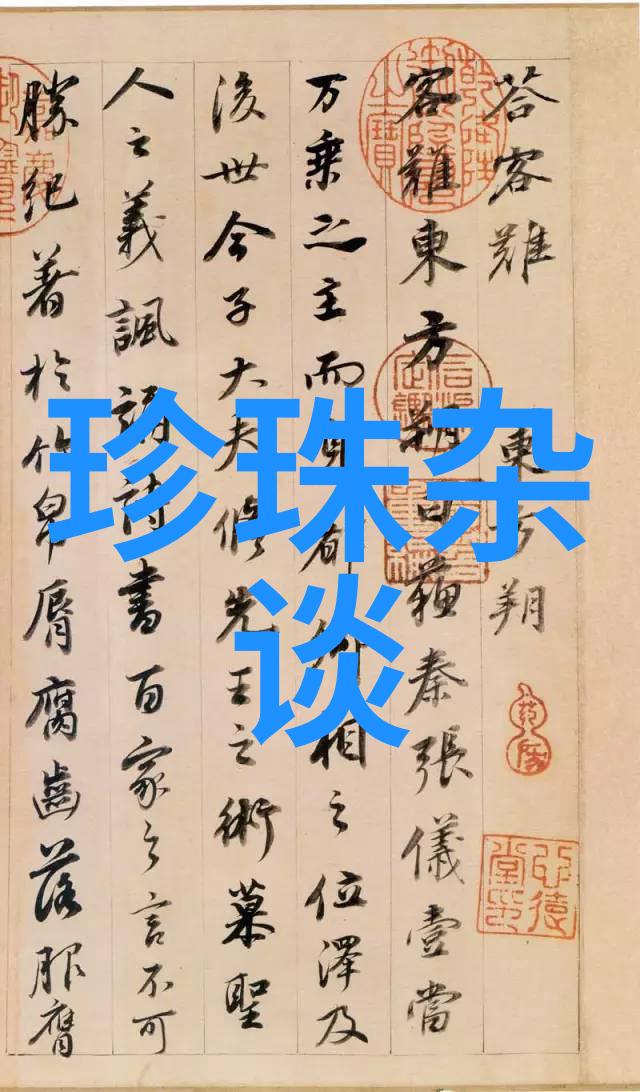 荅客難 東方朔
客難東方朔曰蘇秦張儀壹當
万乘之主而身相之位澤及
後世今子大夫修先王之術慕聖
人之義諷誦詩書百家之言不可
勝紀著於竹帛脣腐齒落服膺
珍珠杂
谈